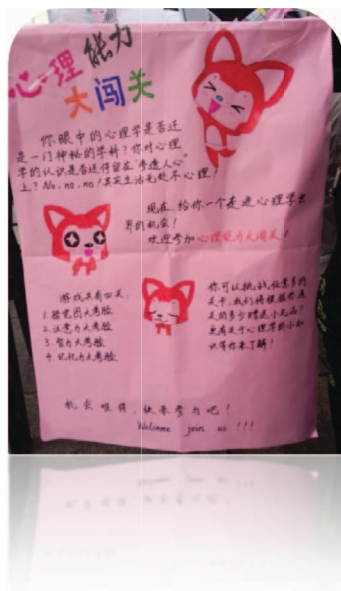 心理能力
大闯关
你眼中的心理学是否还
是一门神秘的学科？你对心理
学的认识是否还停留在"看透人心"
上？No, no, no！其实生活无处不心理！
现在，给你一个走进心理学世
界的机会！
欢迎参加心理能力大闯关！
游戏共有四关：
1. 错觉图大考验
2. 注意力大考验
3. 智力大考验
4. 记忆力大考验
你可以挑战任意多的
关卡，我们将根据你通
关的多少赠送小礼品！
更有关于心理学的小知
识等你来了解！
机会难得，快来参与吧！
Welcome join us !!!